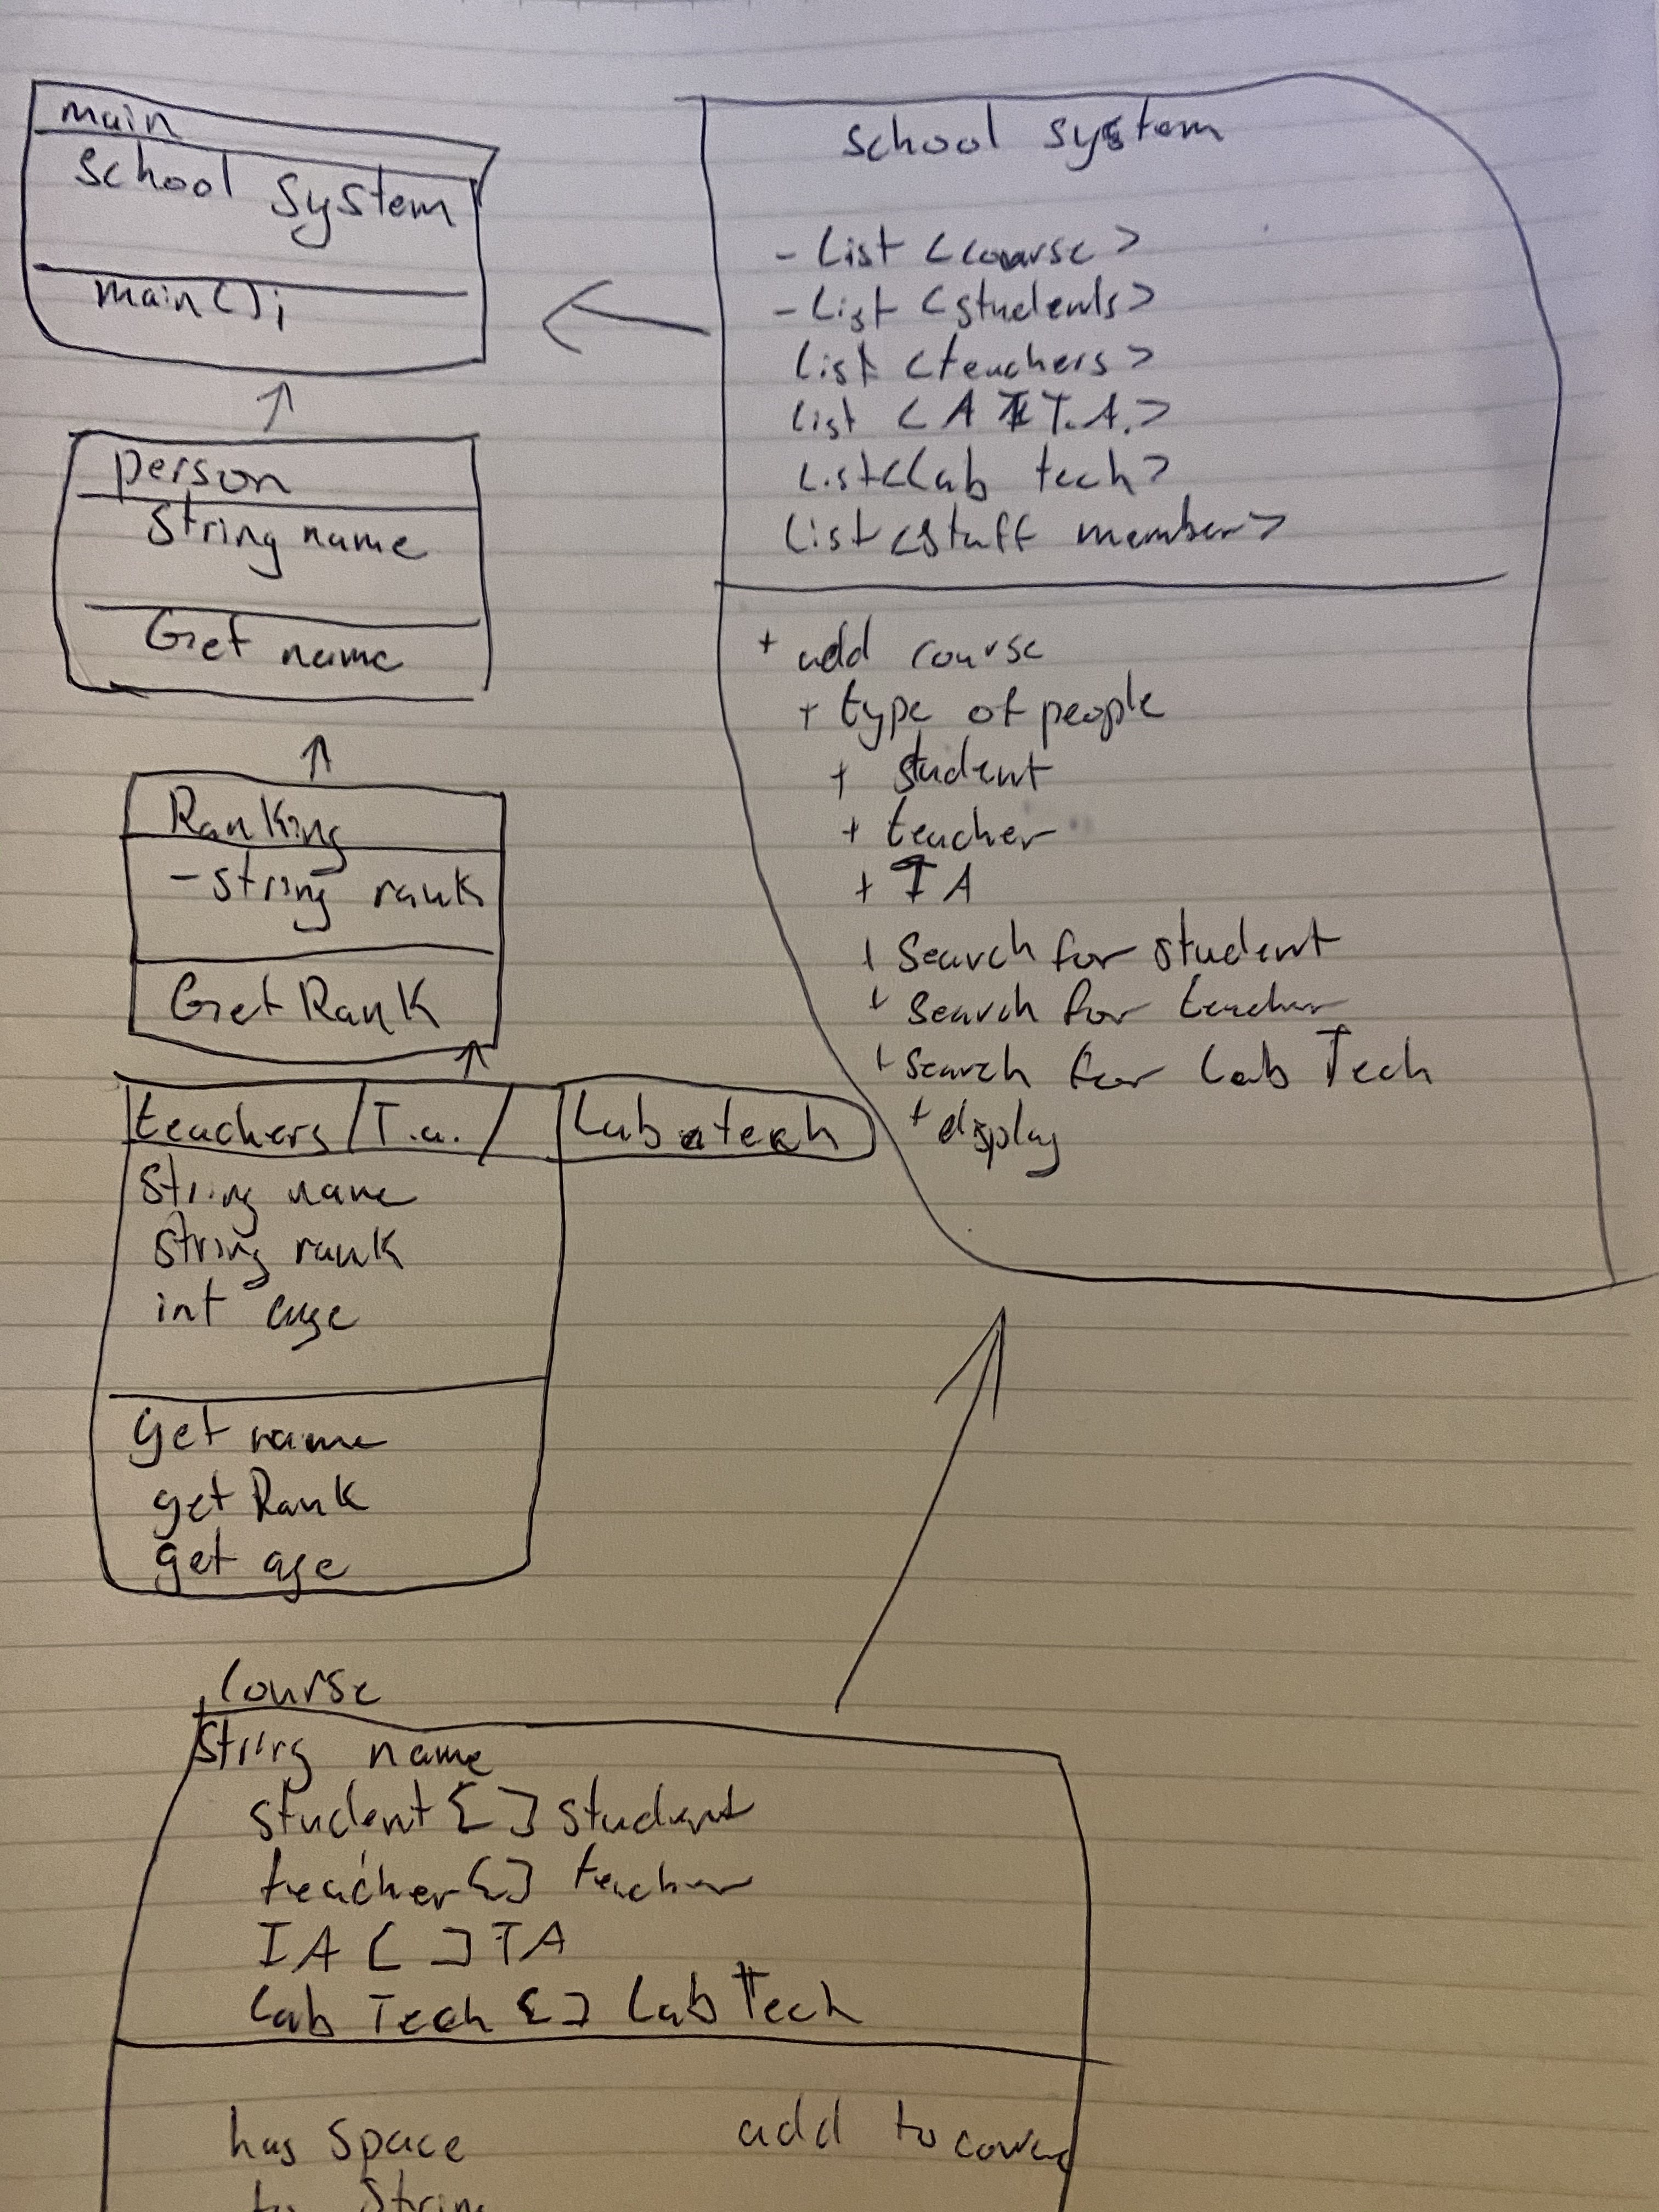 main
school system
main();
person
String name
Get name
Ranking
- string rank
Get Rank
teachers / T.a. / Lab tech
String name
string rank
int age
get name
get Rank
get age
school system
- List <course>
- List <students>
List <teachers>
List < A T.A.>
List<Lab tech>
List <staff member>
+ add course
+ type of people
+ student
+ teacher
+ TA
+ Search for student
+ Search for teacher
+ Search for Lab Tech
+ display
Course
String name
student [ ] student
teacher [ ] teacher
TA [ ] TA
Lab Tech [ ] Lab Tech
has space add to course
to String